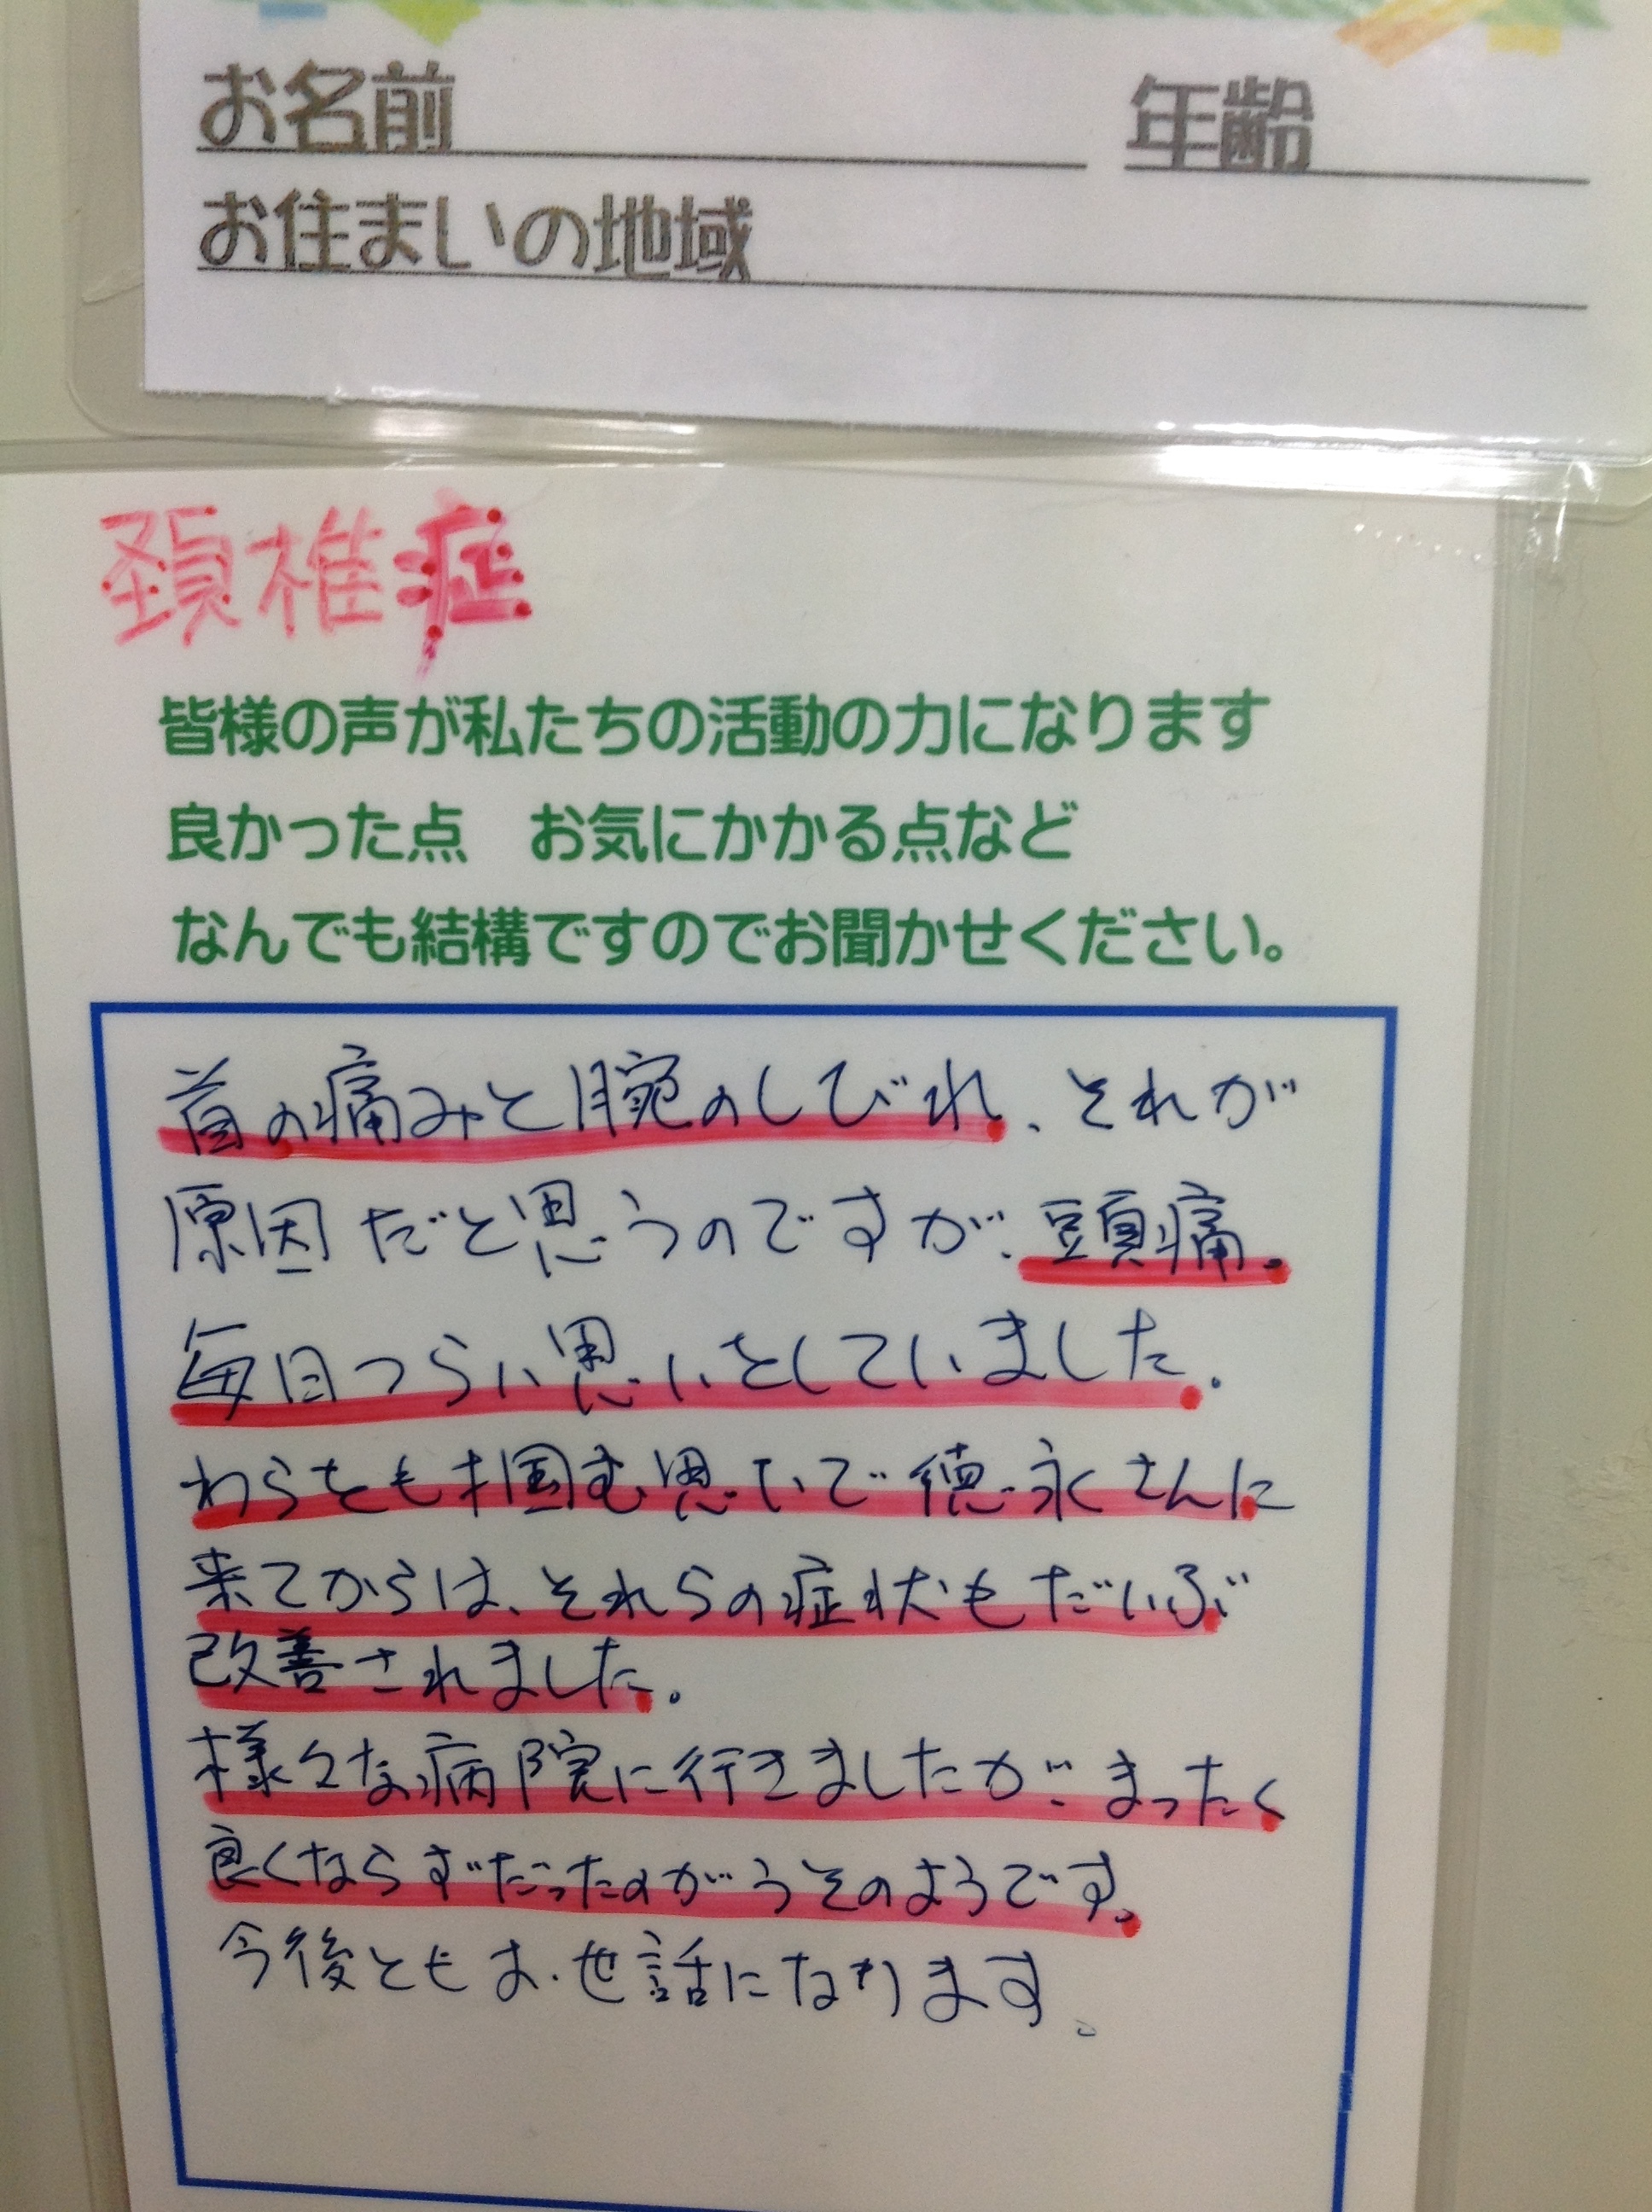 お名前 年齢
お住まいの地域
頚椎症
皆様の声が私たちの活動の力になります
良かった点 お気にかかる点など
なんでも結構ですのでお聞かせください。
首の痛みと腕のしびれ、それが
原因だと思うのですが、頭痛。
毎日つらい思いをしていました。
わらをも掴む思いで徳永さんに
来てからは、それらの症状もだいぶ
改善されました。
様々な病院に行きましたが、まったく
良くならずだったのがうそのようです。
今後ともお世話になります。